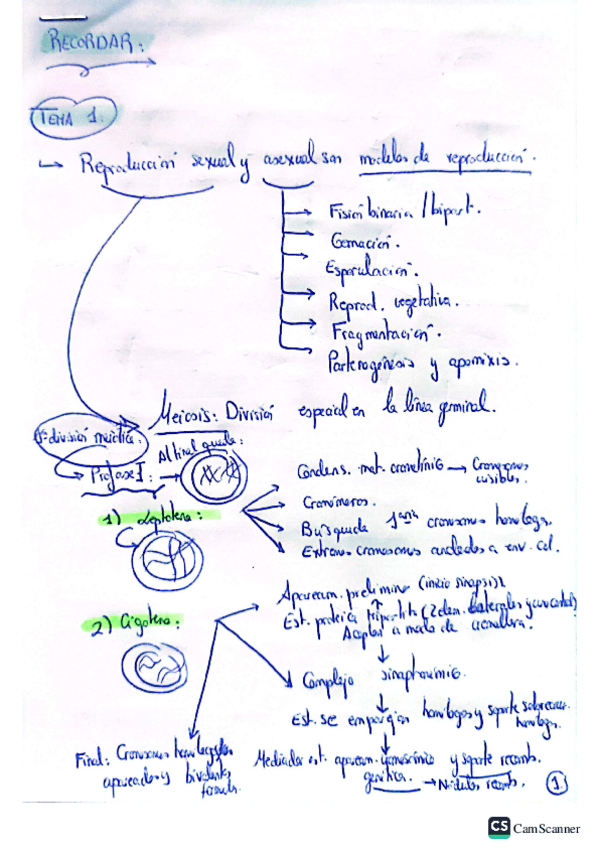 RECORDAR:
TEMA 1.
↳ Reproducción sexual y asexual son modelos de reproducción.
Fisión binaria / bipart.
Gemación.
Esporulación.
Reprod. vegetativa.
Fragmentación.
Partenogénesis y apomixis.
Meiosis: División especial en la línea germinal.
1ª división meiótica:
Al final queda:
Profase I:
1) Leptotena:
Condens. mat. cromatínico → Cromosomas visibles.
Cromómeros.
Búsqueda cromosomas homólogs.
Extremos cromosomas anclados a env. cel.
2) Cigotena:
Apaream. preliminar (inicio sinapsis)
Est. proteica tripartita (2 elem. laterales y uno central)
Acoplan a modo de cremallera.
Complejo sinaptonémico.
Est. se emparejan homólogos y soporte sobrecruz. homólogs.
Final: Cromosomas homólogos apareados y bivalentes
Mediador est. apaream. y soporte recomb. genética. → Nódulos recomb.
1
CS CamScanner